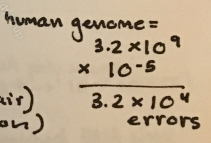 human genome =
3.2 × 10⁹
× 10⁻⁵
3.2 × 10⁴
errors